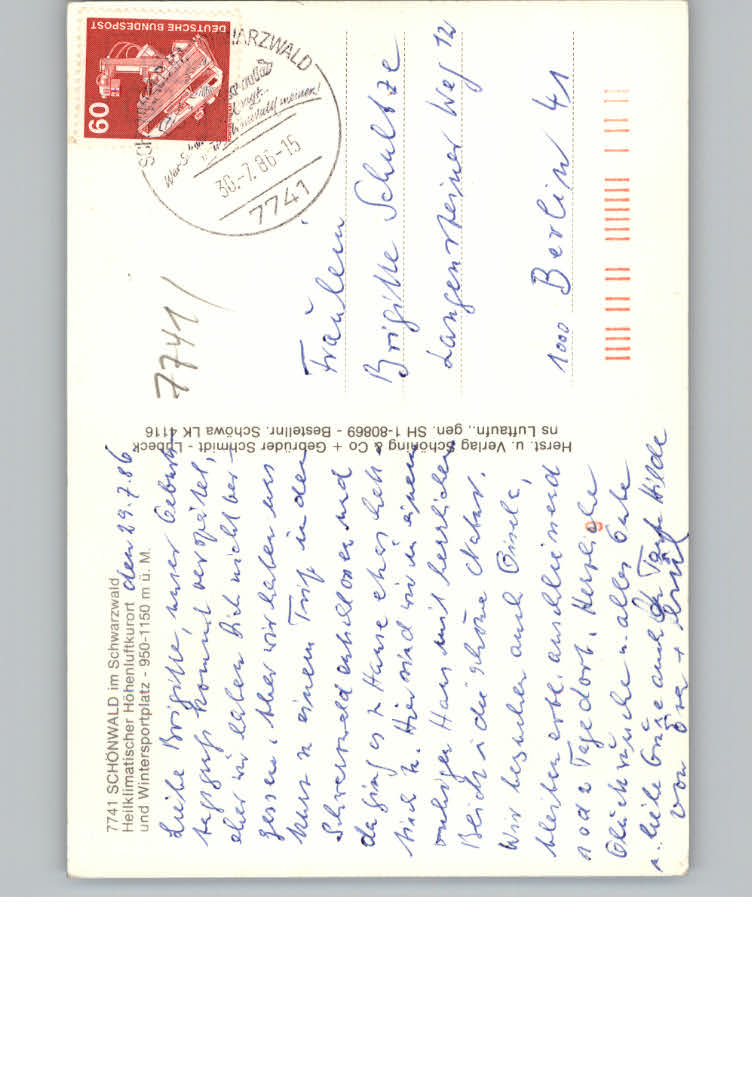 7741 SCHÖNWALD im Schwarzwald
Heilklimatischer Höhenluftkurort
und Wintersportplatz - 950-1150 m ü. M.
den 29.7.86
Liebe Brigitte, unser Geburts
tagsgruß kommt verspätet,
aber wir haben Dich nicht ver-
gessen. Aber wir haben uns
kurz zu einem Trip in den
Schwarzwald entschlossen und
da ging es z Hause etwas
Hier sind wir in einem
ruhigen Haus mit herrlichem
Blick i die schöne Natur.
Wir besuchen auch Gisela,
bleiben evtl. anschließend
1 od 2 Tage dort. Herzliche
Glückwünsche u. alles Gute
u. liebe Grüße auch Tante Hilde
von +
Herst. u. Verlag Schöning & Co + Gebrüder Schmidt - Lübeck
ns Luftaufn., gen. SH 1-80869 - Bestellnr. Schöwa LK 4116
DEUTSCHE BUNDESPOST
60
SCHWARZWALD
30.-7.86-15
7741
7741/
Fräulein
Brigitte Schultze
Langensteiner Weg 12
1000 Berlin 41